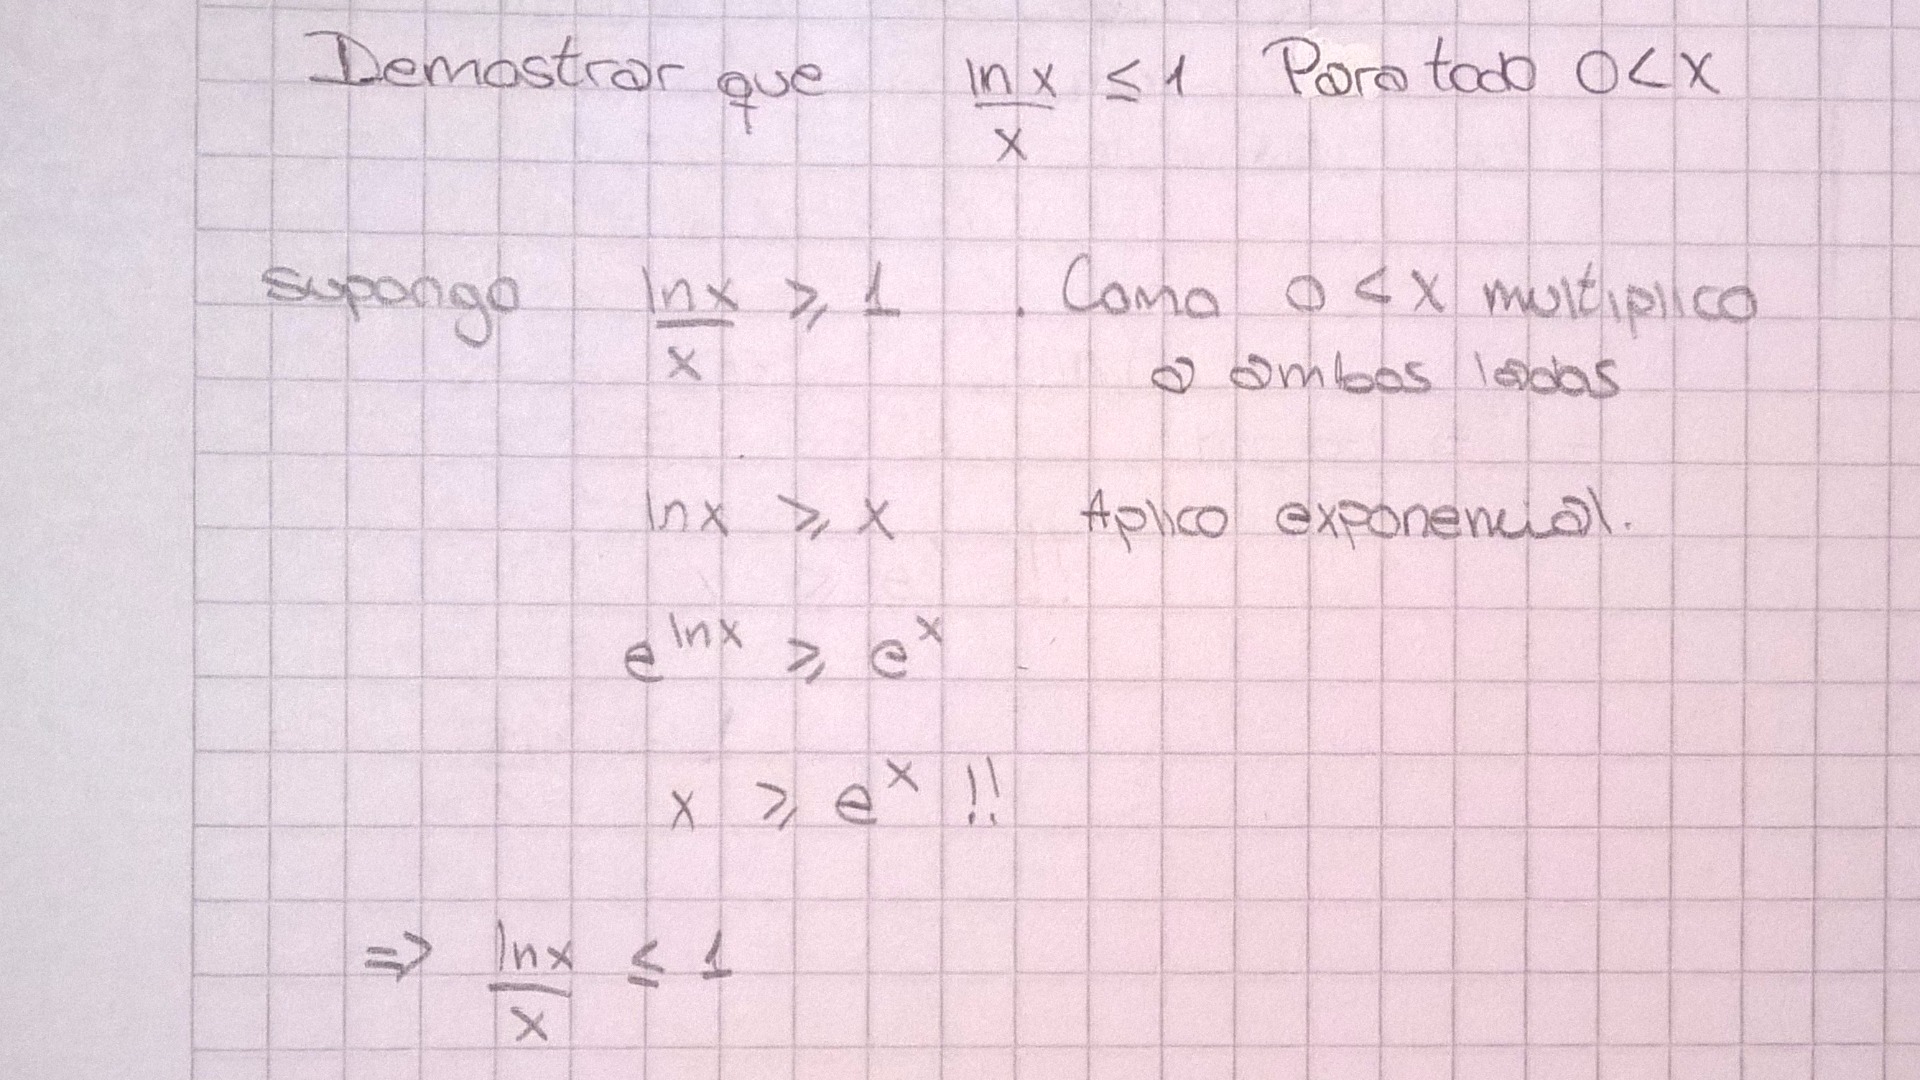 Demostrar que ln x / x ≤ 1 Para todo 0 < x
supongo ln x / x ≥ 1 . Como 0 < x multiplico
a ambos lados
ln x ≥ x Aplico exponencial.
e^{ln x} ≥ e^x
x ≥ e^x !!
⇒ ln x / x ≤ 1